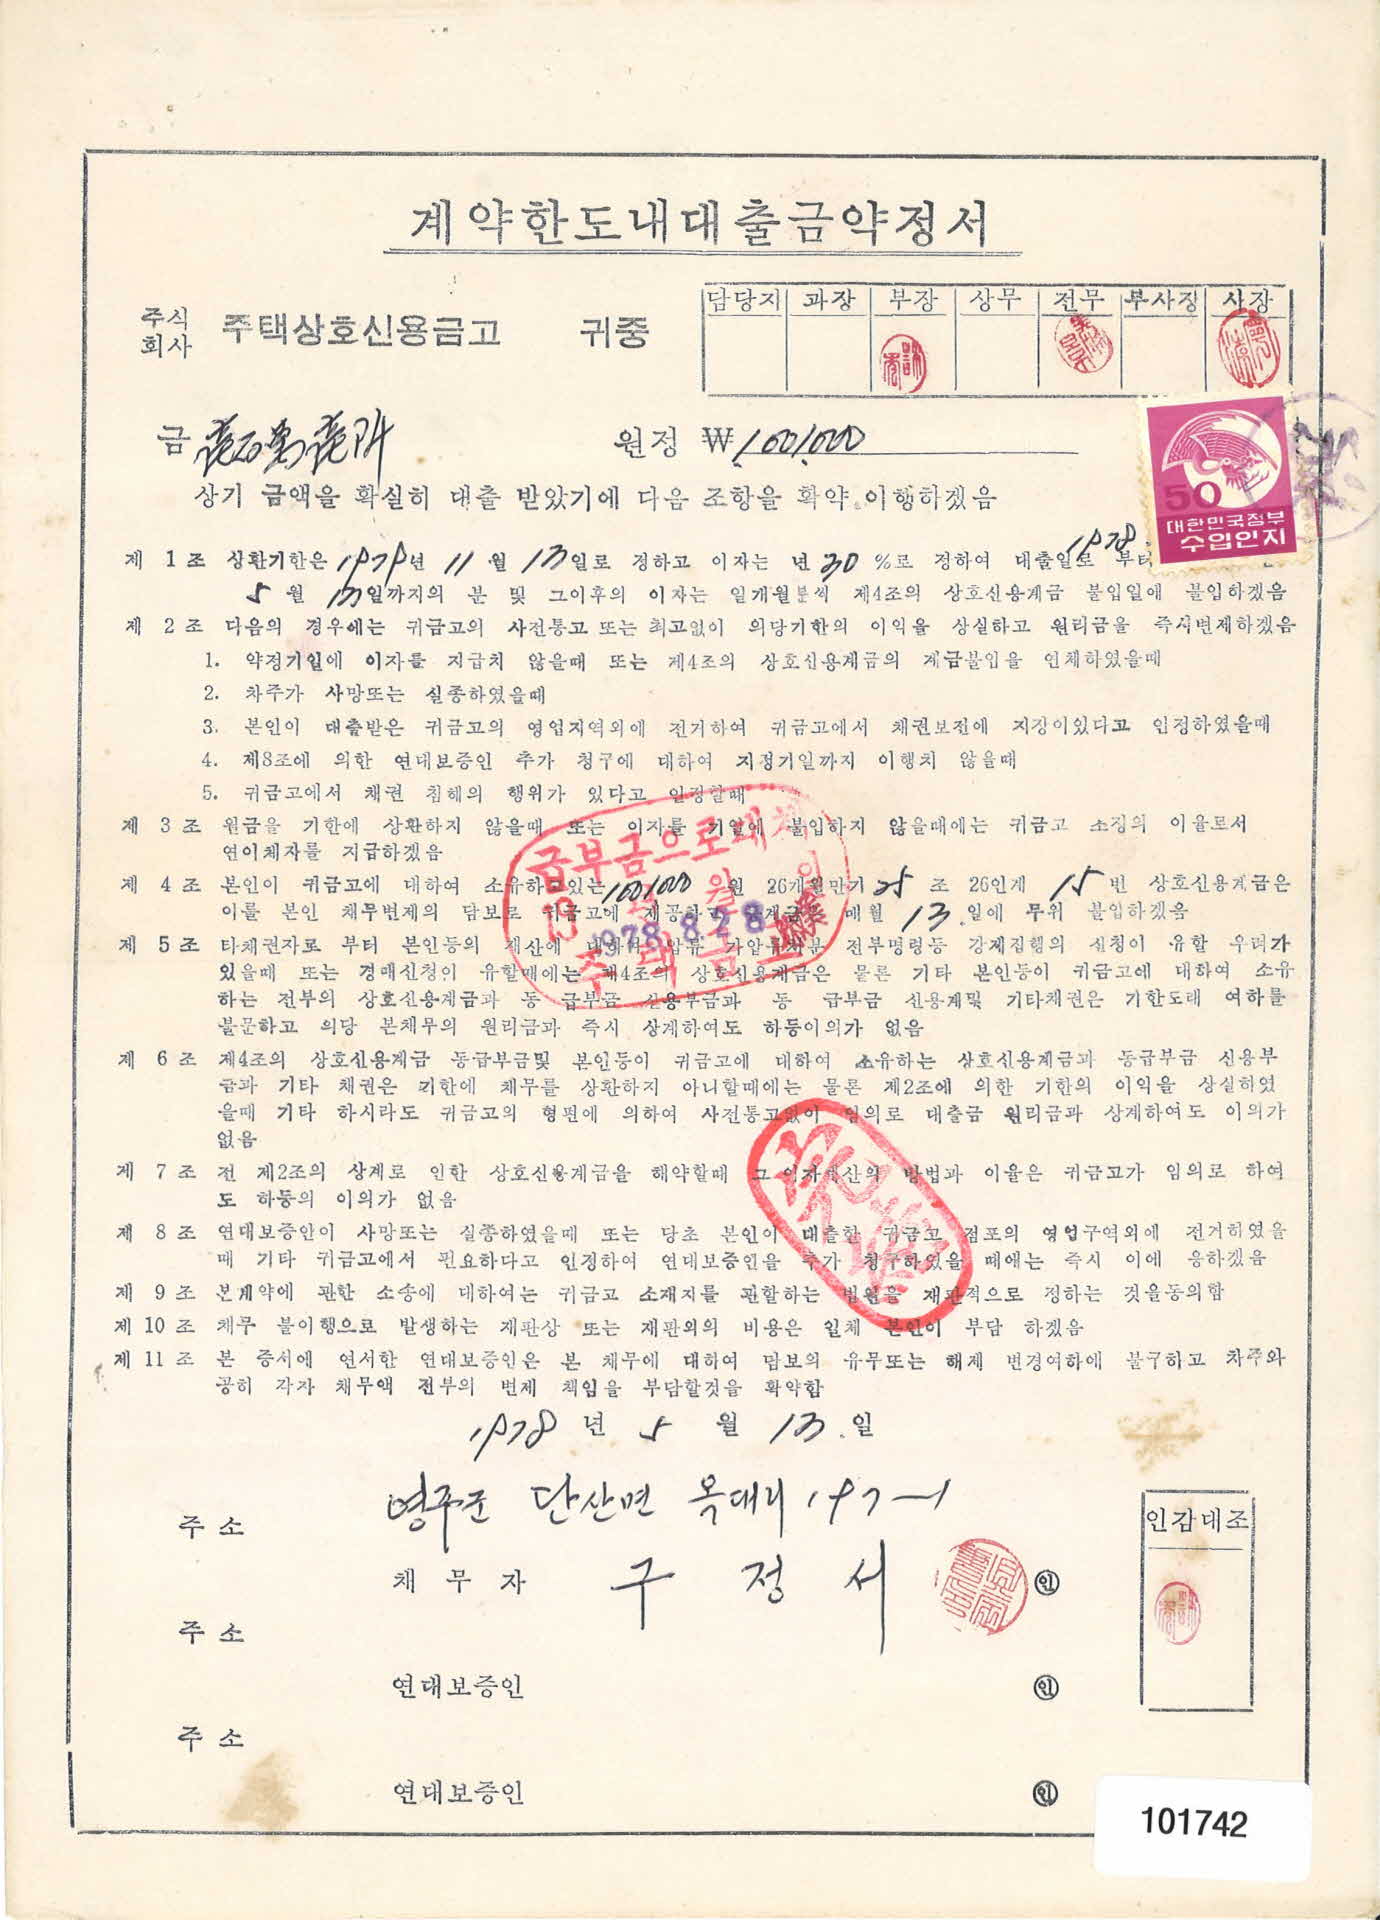 계약한도내대출금약정서
담당지 과장 부장 상무 전무 부사장 사장
주식회사 주택상호신용금고 귀중
금 壱百萬壱阡 원정 ₩1,001,000
50
대한민국정부
수입인지
상기 금액을 확실히 대출 받았기에 다음 조항을 확약 이행하겠음
제 1 조 상환기한은 1979년 11 월 13일로 정하고 이자는 년 30 %로 정하여 대출일로 부터 1978.
5 월 13일까지의 분 및 그이후의 이자는 일개월분씩 제4조의 상호신용계금 불입일에 불입하겠음
제 2 조 다음의 경우에는 귀금고의 사전통고 또는 최고없이 의당기한의 이익을 상실하고 원리금을 즉시변제하겠음
1. 약정기일에 이자를 지급치 않을때 또는 제4조의 상호신용계금의 계금불입을 연체하였을때
2. 차주가 사망또는 실종하였을때
3. 본인이 대출받은 귀금고의 영업지역외에 전거하여 귀금고에서 채권보전에 지장이있다고 인정하였을때
4. 제8조에 의한 연대보증인 추가 청구에 대하여 지정기일까지 이행치 않을때
5. 귀금고에서 채권 침해의 행위가 있다고 인정할때
제 3 조 원금을 기한에 상환하지 않을때 또는 이자를 기일에 불입하지 않을때에는 귀금고 소정의 이율로서
연이체자를 지급하겠음
급부금으로대체
제 4 조 본인이 귀금고에 대하여 소유하고있는 1001000 원 26개월만기 25 조 26인계 15 번 상호신용계금은
이를 본인 채무변제의 담보로 귀금고에 제공하고 매월 13.일에 무위 불입하겠음
1978.8.28
주택금고
제 5 조 타채권자로 부터 본인등의 재산에 대하여 압류 가압류처분 전부명령등 강제집행의 신청이 유할 우려가
있을때 또는 경매신청이 유할때에는 제4조의 상호신용계금은 물론 기타 본인등이 귀금고에 대하여 소유
하는 전부의 상호신용계금과 동 급부금 신용부금과 동 급부금 신용계및 기타채권은 기한도래 여하를
불문하고 의당 본채무의 원리금과 즉시 상계하여도 하등이의가 없음
제 6 조 제4조의 상호신용계금 동급부금및 본인등이 귀금고에 대하여 소유하는 상호신용계금과 동급부금 신용부
금과 기타 채권은 기한에 채무를 상환하지 아니할때에는 물론 제2조에 의한 기한의 이익을 상실하였
을때 기타 하시라도 귀금고의 형편에 의하여 사전통고없이 임의로 대출금 원리금과 상계하여도 이의가
없음
제 7 조 전 제2조의 상계로 인한 상호신용계금을 해약할때 그 이자계산의 방법과 이율은 귀금고가 임의로 하여
도 하등의 이의가 없음
제 8 조 연대보증안이 사망또는 실종하였을때 또는 당초 본인이 대출한 귀금고 점포의 영업구역외에 전거하였을
때 기타 귀금고에서 필요하다고 인정하여 연대보증인을 추가 청구하였을 때에는 즉시 이에 응하겠음
제 9 조 본계약에 관한 소송에 대하여는 귀금고 소재지를 관할하는 법원을 재판적으로 정하는 것을동의함
제 10 조 채무 불이행으로 발생하는 재판상 또는 재판외의 비용은 일체 본인이 부담 하겠음
제 11 조 본 증서에 연서한 연대보증인은 본 채무에 대하여 담보의 유무또는 해제 변경여하에 불구하고 차주와
공히 각자 채무액 전부의 변제 책임을 부담할것을 확약함
1978 년 5 월 13.일
주소 영주군 단산면 옥대리 197-1
인감대조
채무자 구정서 ㊞
주소
연대보증인 ㊞
주소
연대보증인 ㊞
101742